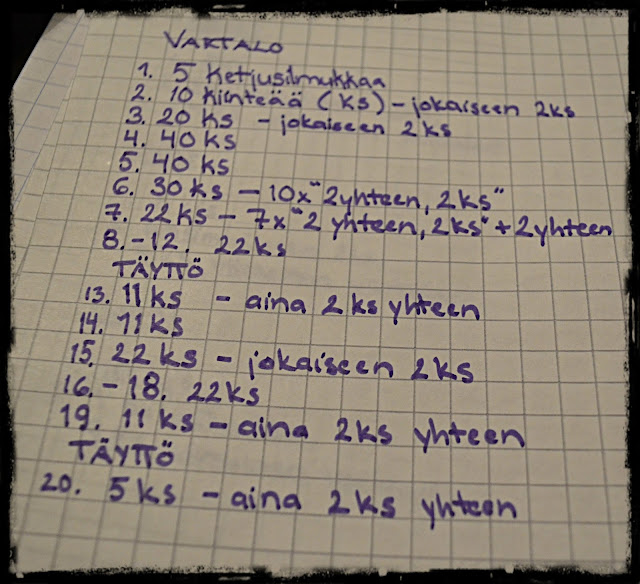 VARTALO
1. 5 ketjusilmukkaa
2. 10 kiinteää (ks) - jokaiseen 2ks
3. 20 ks - jokaiseen 2 ks
4. 40 ks
5. 40 ks
6. 30 ks - 10x "2yhteen, 2ks"
7. 22 ks - 7x "2 yhteen, 2ks" + 2 yhteen
8. - 12. 22 ks
TÄYTTÖ
13. 11 ks - aina 2 ks yhteen
14. 11 ks
15. 22 ks - jokaiseen 2 ks
16. - 18. 22 ks
19. 11 ks - aina 2ks yhteen
TÄYTTÖ
20. 5 ks - aina 2 ks yhteen